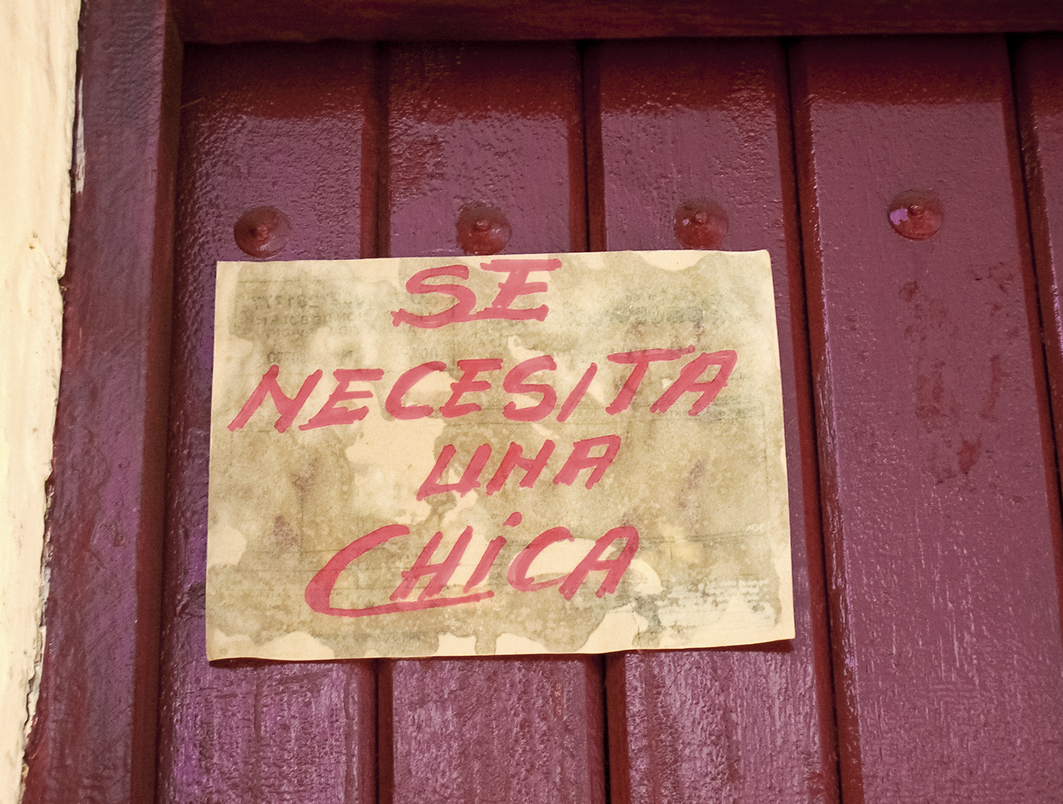 SE
NECESITA
UNA
CHiCA